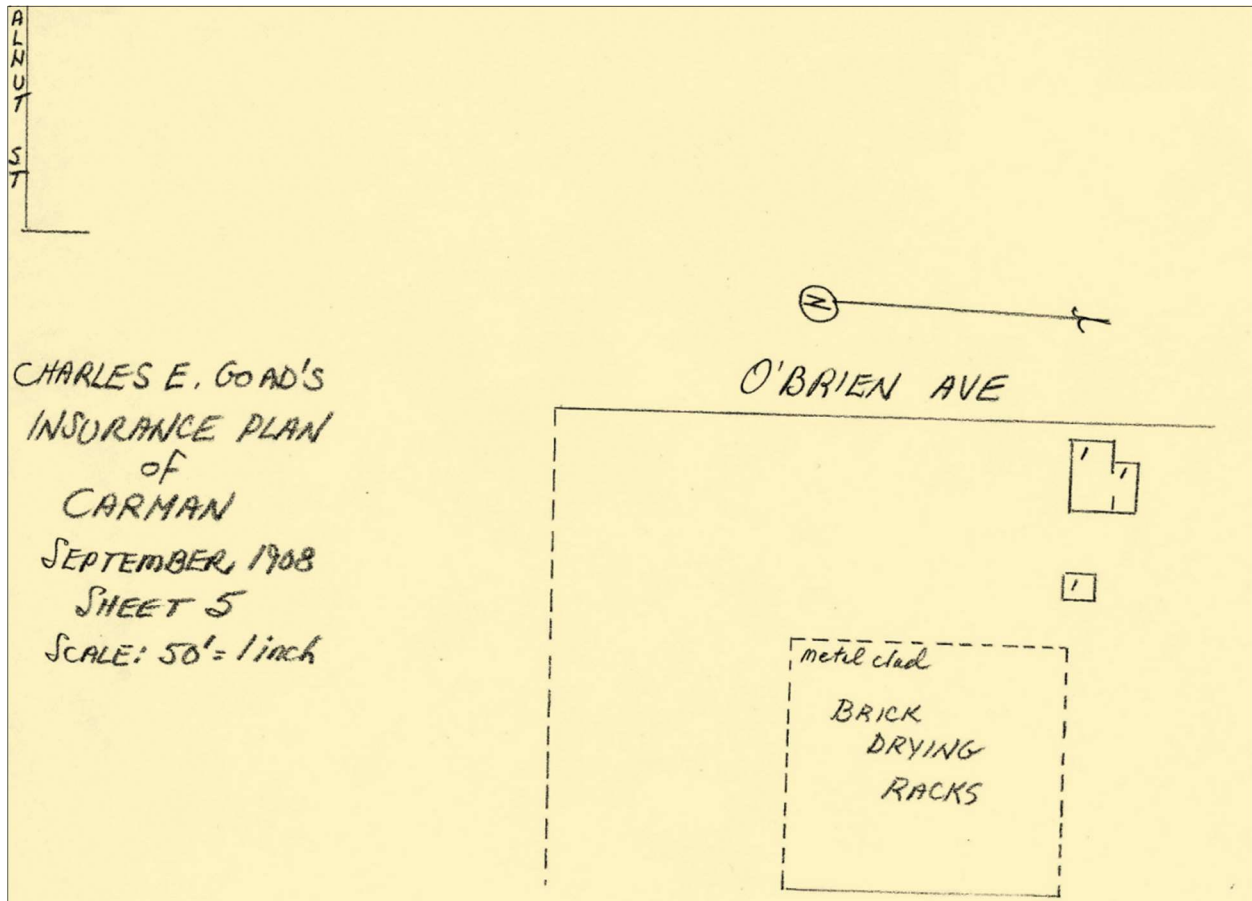 ALNUT ST
N
O'BRIEN AVE
CHARLES E. GOAD'S
INSURANCE PLAN
of
CARMAN
SEPTEMBER, 1908
SHEET 5
SCALE: 50' = 1 inch
1
1
1
metal clad
BRICK
DRYING
RACKS